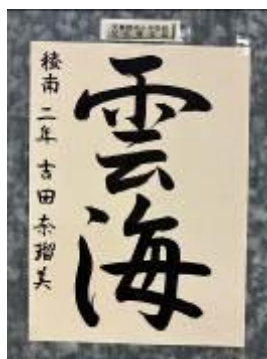 雲海
稜南 二年 吉田奈瑠美